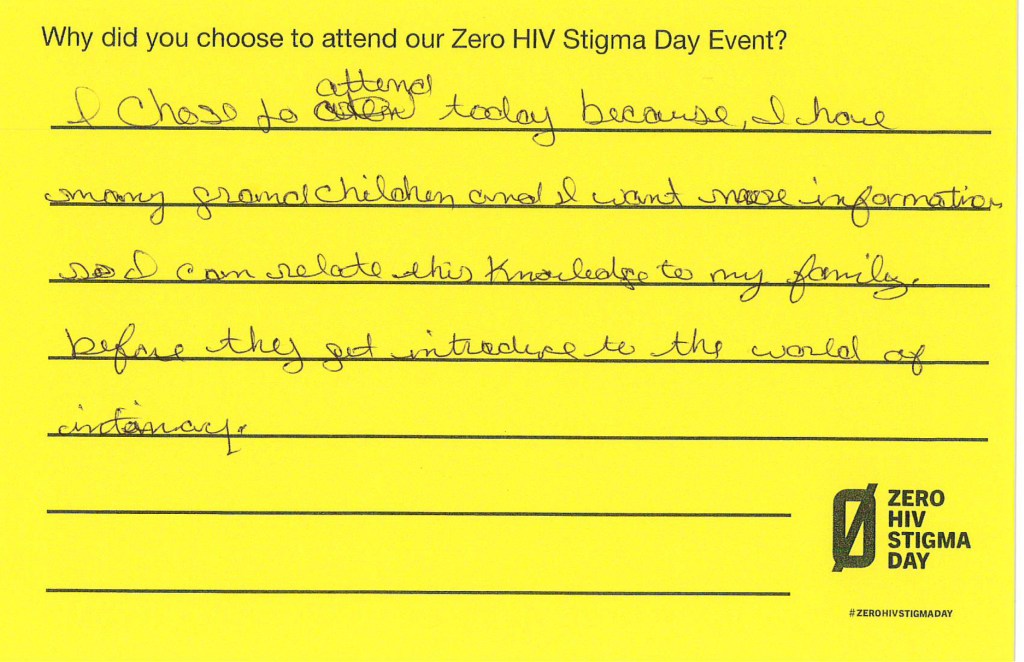 Why did you choose to attend our Zero HIV Stigma Day Event?
attend
I Chose to today because, I have
many grandchildren and I want more information
so I can relate this Knowledge to my family.
before they get introduce to the world of
intimacy.
ZERO
HIV
STIGMA
DAY
#ZEROHIVSTIGMADAY